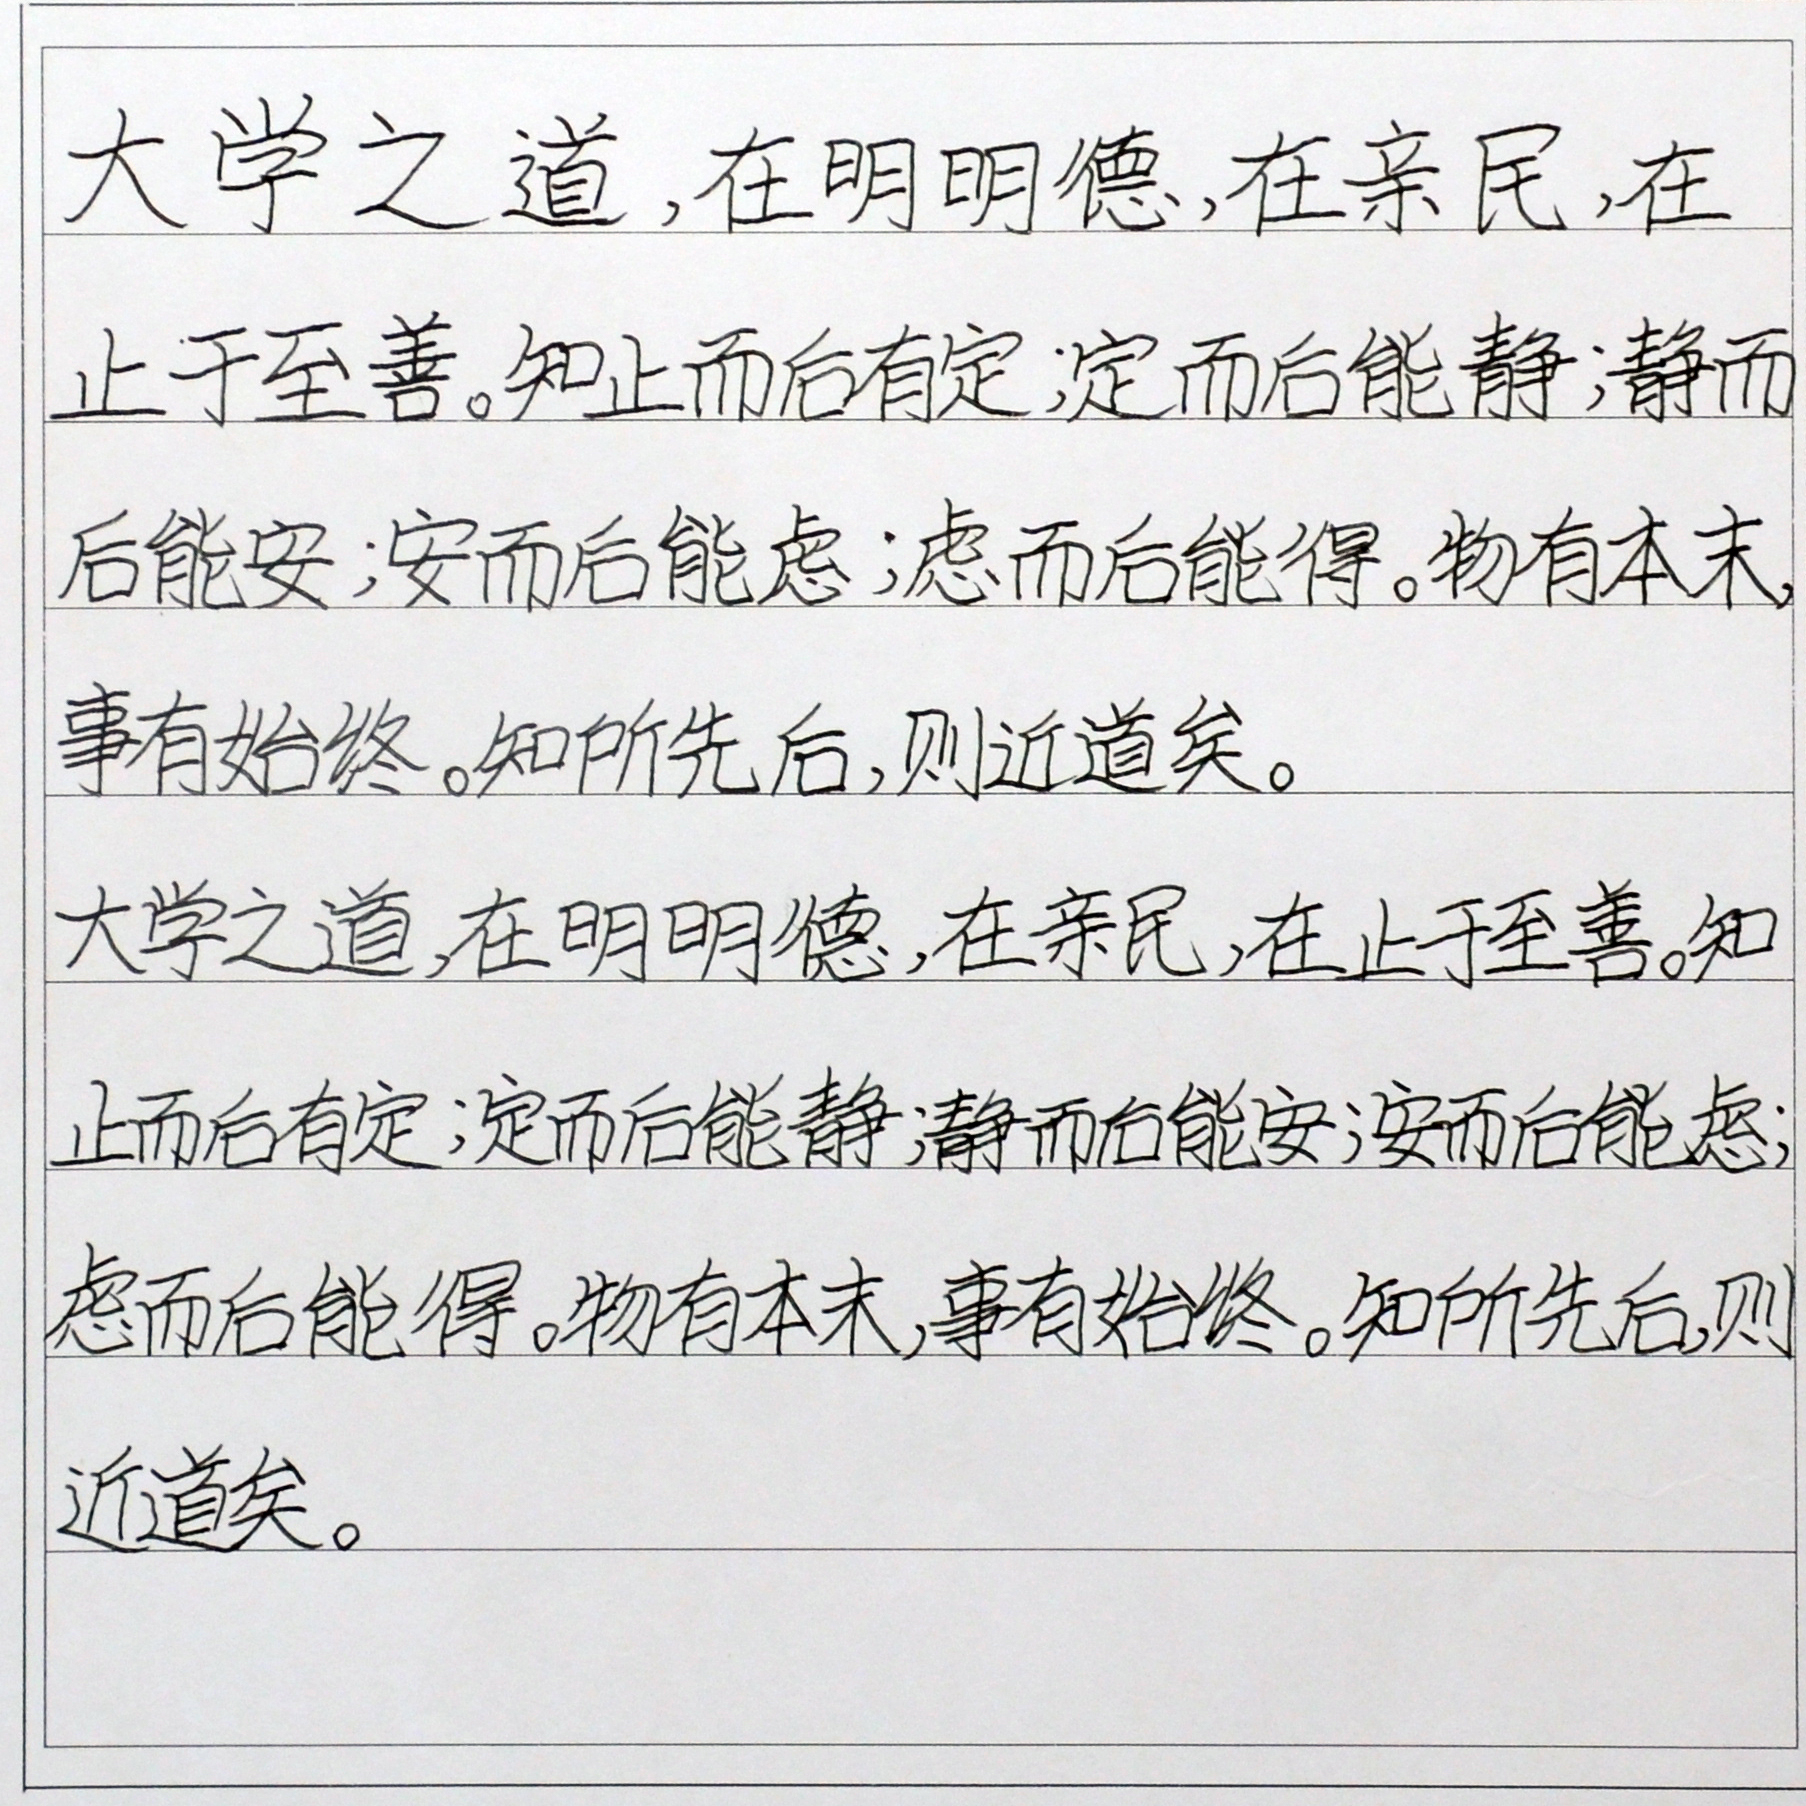 大学之道,在明明德,在亲民,在
止于至善。知止而后有定;定而后能静;静而
后能安;安而后能虑;虑而后能得。物有本末,
事有始终。知所先后,则近道矣。
大学之道,在明明德,在亲民,在止于至善。知
止而后有定;定而后能静;静而后能安;安而后能虑;
虑而后能得。物有本末,事有始终。知所先后,则
近道矣。